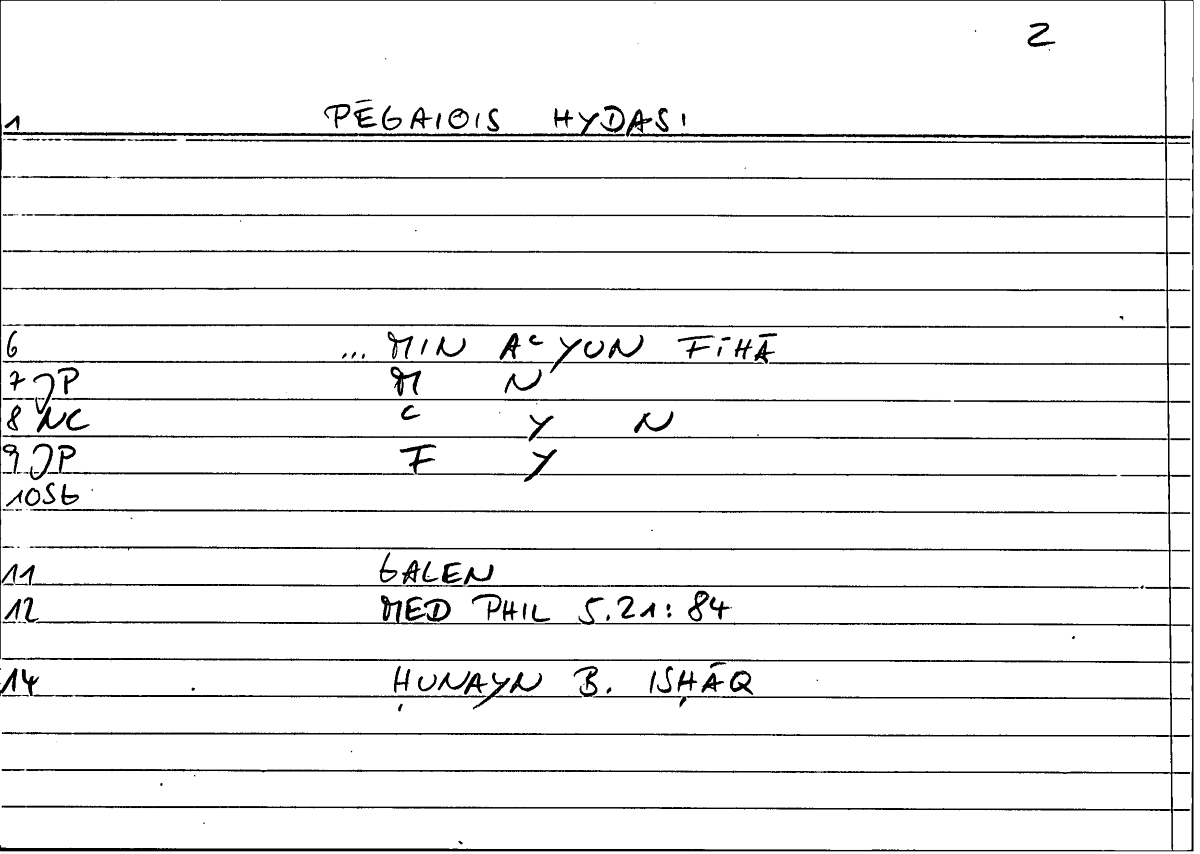 2
1 PĒGAIOIS HYDASI
6 ... MIN AᶜYUN FĪHĀ
7 JP M N
8 NC ᶜ Y N
9 JP F Y
10 SG
11 GALEN
12 MED PHIL 5.21: 84
14 ḤUNAYN B. ISḤĀQ